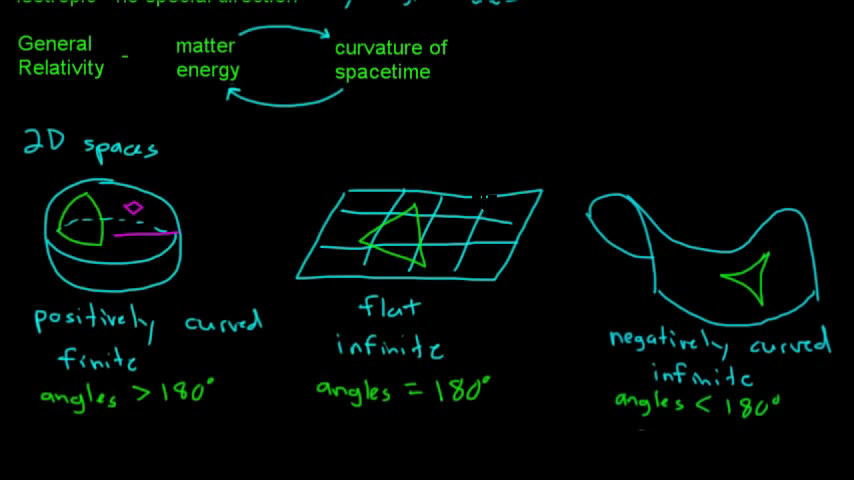 isotropic - no special direction
General
Relativity -
matter
energy
curvature of
spacetime
2D spaces
positively curved
finite
angles > 180°
flat
infinite
angles = 180°
negatively curved
infinite
angles < 180°